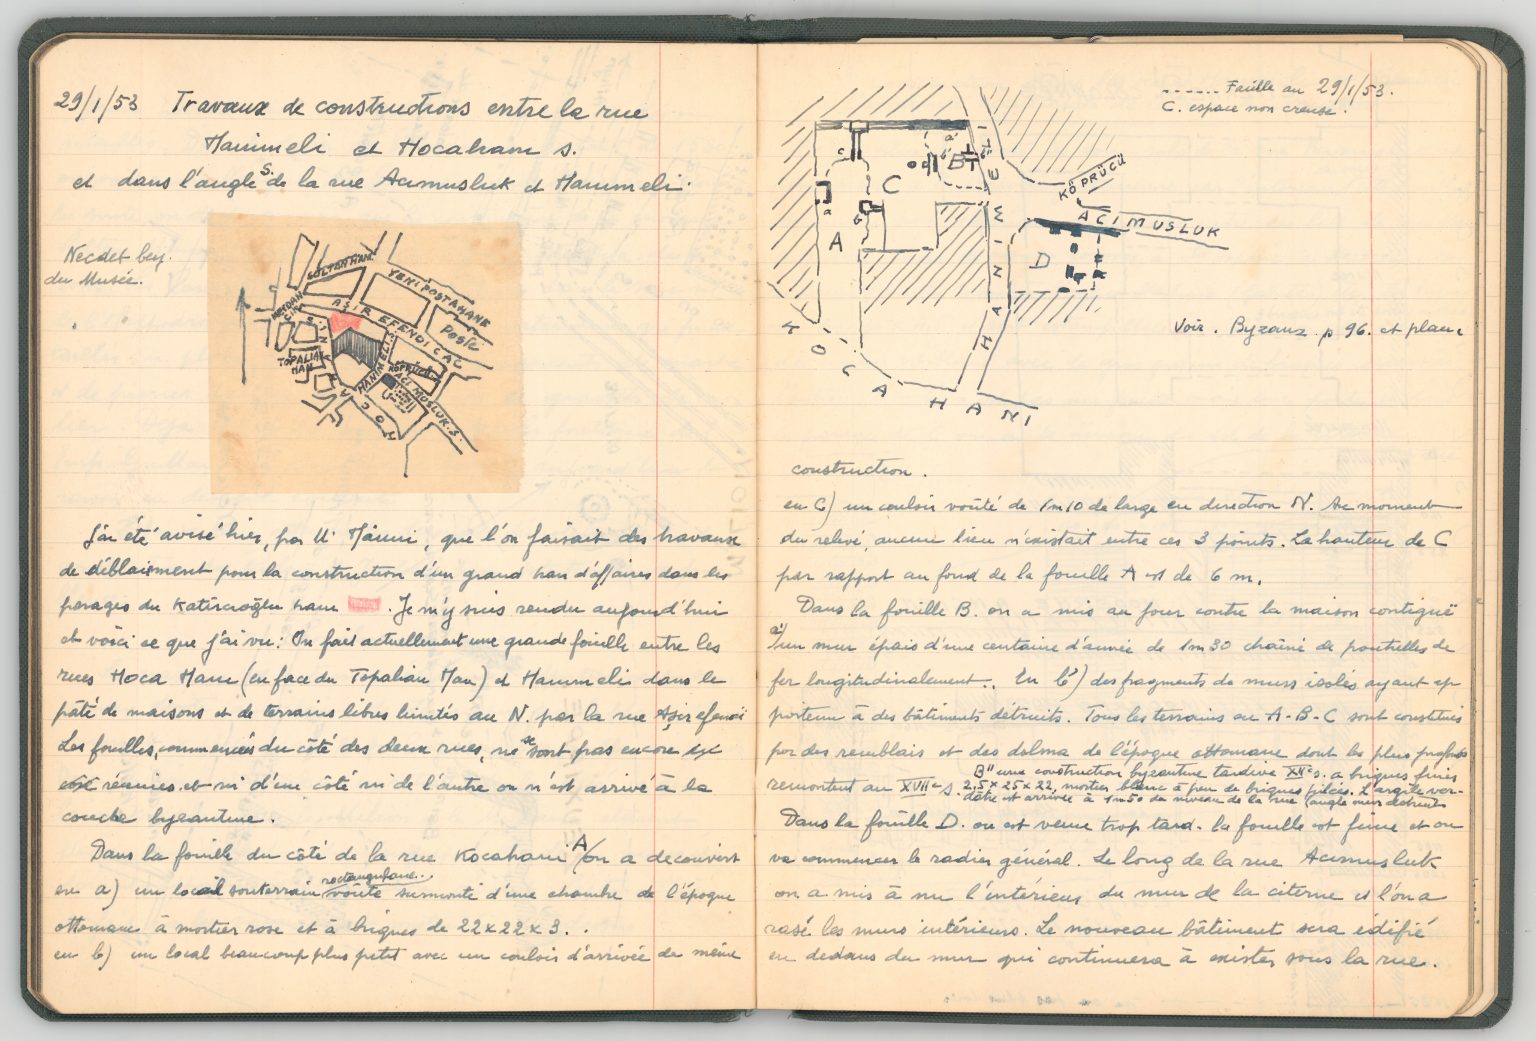 29/1/53 Travaux de constructions entre la rue
Hanımeli et Hocahanı s.
et dans l'angle S. de la rue Acımusluk et Hanımeli.
Necdet bey.
du Musée.
SULTAN HAM.
YENI POSTAHANE
AŞIR EFENDI CAĆ
POSTE
MEYDAN
TOPALIAN
HAN
HANIMELI S.
KÖPRÜCÜ
ACI MUSLUK. S.
HOCA
J'ai été avisé hier, par Mr Mainri, que l'on faisait des travaux
de déblaiement pour la construction d'un grand han d'affaires dans les
parages du Katırcıoğlu hanı. Je m'y suis rendu aujourd'hui
et voici ce que j'ai vu: On fait actuellement une grande fouille entre les
rues Hoca Hanı (en face du Topalian Han) et Hanımeli dans le
pâté de maisons et de terrains libres limités au N. par la rue Aşir efendi
Les fouilles, commencées du côté des deux rues, ne se sont pas encore
réunies et ni d'un côté ni de l'autre on n'est arrivé à la
couche byzantine.
Dans la fouille du côté de la rue Kocahanı A/ on a decouvert
en a) un local souterrain rectangulaire voûté surmonté d'une chambre de l'époque
ottomane à mortier rose et à briques de 22x22x3.
en b) un local beaucoup plus petit avec un couloir d'arrivée de même
------ Fouille au 29/1/53.
C. espace non creusé.
KÖPRÜCÜ
ACI MUSLUK
HANIMELI
KOCA HANI
A
B
C
D
a
b
c
a'
b'
Voir. Byzanz p 96. et plan
construction.
en C) un couloir voûté de 1m10 de large en direction N. Au moment
du relevé, aucun lien n'existait entre ces 3 points. La hauteur de C
par rapport au fond de la fouille A est de 6 m.
Dans la fouille B. on a mis au jour contre la maison contiguë
a') un mur épais d'une centaine d'année de 1m30 chaîné de poutrelles de
fer longitudinalement. En b') des fragments de murs isolés ayant ap
partenu à des bâtiments détruits. Tous les terrains en A-B-C sont constitués
par des remblais et des dolma de l'époque ottomane dont les plus profonds
remontent au XVIIe s. B" une construction byzantine tardive XIIe s. a briques fines
2,5 x 25 x 22, mortier blanc à peu de briques pilées. L'argile ver-
dâtre est arrivée à 1m50 de niveau de la rue (angle mur détruit
Dans la fouille D. on est venu trop tard. la fouille est finie et on
va commencer le radier général. Le long de la rue Acımusluk
on a mis à nu l'intérieur du mur de la citerne et l'on a
rasé les murs intérieurs. Le nouveau bâtiment sera édifié
en dedans du mur qui continuera à exister sous la rue.